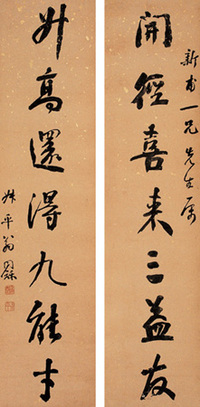 新甫一兄先生属
開徑喜来三益友
升高還得九能才
叔平翁同龢